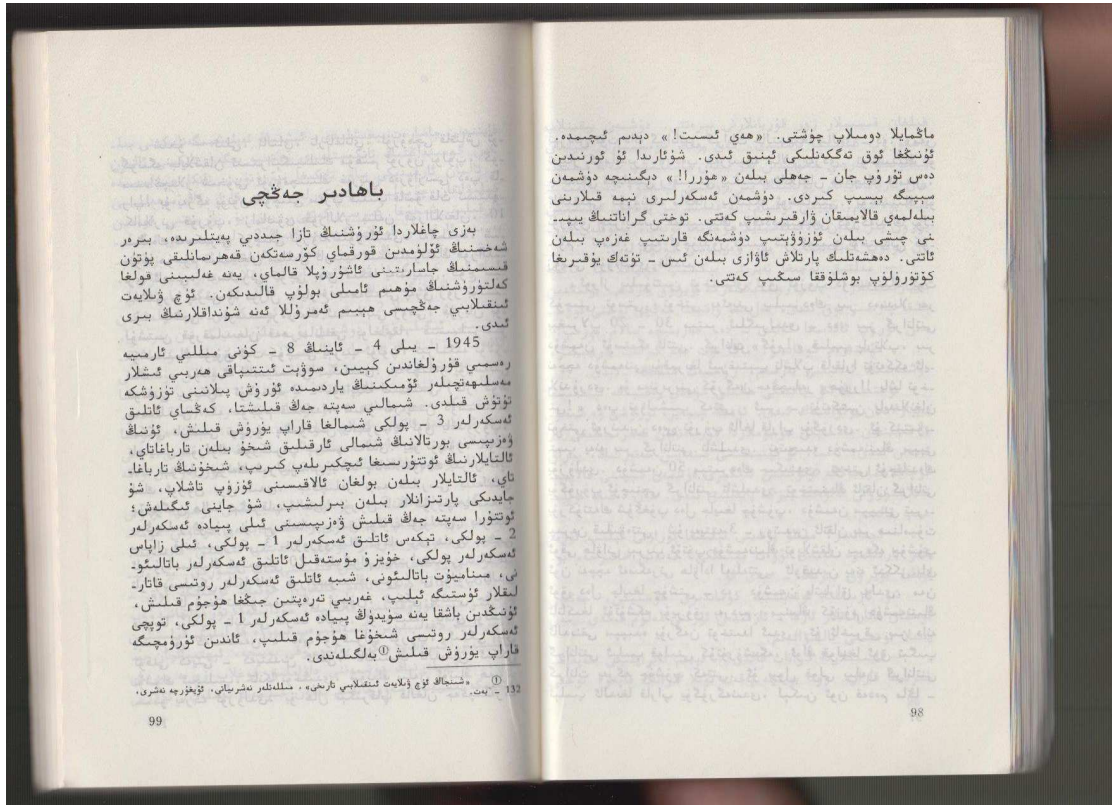 ماڭمايلا دومىلاپ چۈشتى. «ھەي ئىسىت!» دېدىم ئىچىمدە.
ئۇنىڭغا ئوق تەگكەنلىكى ئېنىق ئىدى. شۇئارىدا ئۇ ئورنىدىن
دەس تۇرۇپ جان - جەھلى بىلەن «ھۇررا!» دېگىنىچە دۈشمەن
سېپىگە بېسىپ كىردى. دۈشمەن ئەسكەرلىرى نېمە قىلارىنى
بىلەلمەي قالايمىقان ۋارقىرىشىپ كەتتى. توختى گراناتنىڭ يىپى-
نى چىشى بىلەن ئۈزۈۋېتىپ دۈشمەنگە قارىتىپ غەزەپ بىلەن
ئاتتى. دەھشەتلىك پارتلاش ئاۋازى بىلەن ئىس - تۈتەك يۇقىرىغا
كۆتۈرۈلۈپ بوشلۇققا سىڭىپ كەتتى.
98
باھادىر جەڭچى
بەزى چاغلاردا ئۇرۇشنىڭ تازا جىددىي پەيتلىرىدە، بىرەر
شەخسنىڭ ئۆلۈمدىن قورقماي كۆرسەتكەن قەھرىمانلىقى پۈتۈن
قىسىمنىڭ جاسارىتىنى ئاشۇرۇپلا قالماي، يەنە غەلىبىنى قولغا
كەلتۈرۈشنىڭ مۇھىم ئامىلى بولۇپ قالىدىكەن. ئۈچ ۋىلايەت
ئىنقىلابىي جەڭچىسى ھېيىم ئەمرۇللا ئەنە شۇنداقلارنىڭ بىرى
ئىدى.
1945 - يىلى 4 - ئاينىڭ 8 - كۈنى مىللىي ئارمىيە
رەسمىي قۇرۇلغاندىن كېيىن، سوۋېت ئىتتىپاقى ھەربىي ئىشلار
مەسلىھەتچىلەر ئۆمىكىنىڭ ياردىمىدە ئۇرۇش پىلانىنى تۈزۈشكە
تۇتۇش قىلدى. شىمالىي سەپتە جەڭ قىلىشتا، كەڭساي ئاتلىق
ئەسكەرلەر 3 - پولكى شىمالغا قاراپ يۈرۈش قىلىش، ئۇنىڭ
ۋەزىپىسى بورتالانىڭ شىمالى ئارقىلىق شىخۇ بىلەن تارباغاتاي،
ئالتايلارنىڭ ئوتتۇرىسىغا ئىچكىرىلەپ كىرىپ، شىخۇنىڭ تارباغا-
تاي، ئالتايلار بىلەن بولغان ئالاقىسىنى ئۈزۈپ تاشلاپ، شۇ
جايدىكى پارتىزانلار بىلەن بىرلىشىپ، شۇ جاينى ئىگىلەش؛
ئوتتۇرا سەپتە جەڭ قىلىش ۋەزىپىسىنى ئىلى پىيادە ئەسكەرلەر
2 - پولكى، تېكەس ئاتلىق ئەسكەرلەر 1 - پولكى، ئىلى زاپاس
ئەسكەرلەر پولكى، خۇيزۇ مۇستەقىل ئاتلىق ئەسكەرلەر باتالىئو-
نى، مىناميوت باتالىئونى، شىبە ئاتلىق ئەسكەرلەر روتىسى قاتار-
لىقلار ئۈستىگە ئېلىپ، غەربىي تەرەپتىن جىڭغا ھۇجۇم قىلىش،
ئۇنىڭدىن باشقا يەنە سۈيدۈڭ پىيادە ئەسكەرلەر 1 - پولكى، توپچى
ئەسكەرلەر روتىسى شىخۇغا ھۇجۇم قىلىپ، ئاندىن ئۈرۈمچىگە
قاراپ يۈرۈش قىلىش①بەلگىلەندى.
① «شىنجاڭ ئۈچ ۋىلايەت ئىنقىلابىي تارىخى»، مىللەتلەر نەشرىياتى، ئۇيغۇرچە نەشرى،
132 - بەت.
99